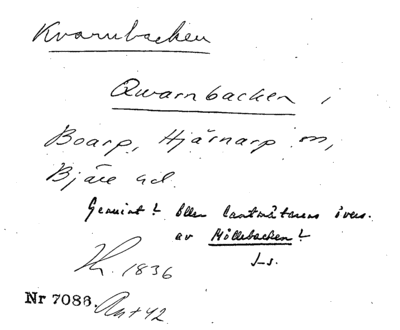 Kvarnbacken
Qwarnbacken i
Boarp, Hjärnarp sn,
Bjäre hd.
Genuint? Eller lantmätarens övers.
av Möllebacken?
J-s.
1836
Nr 7086. Ant 42